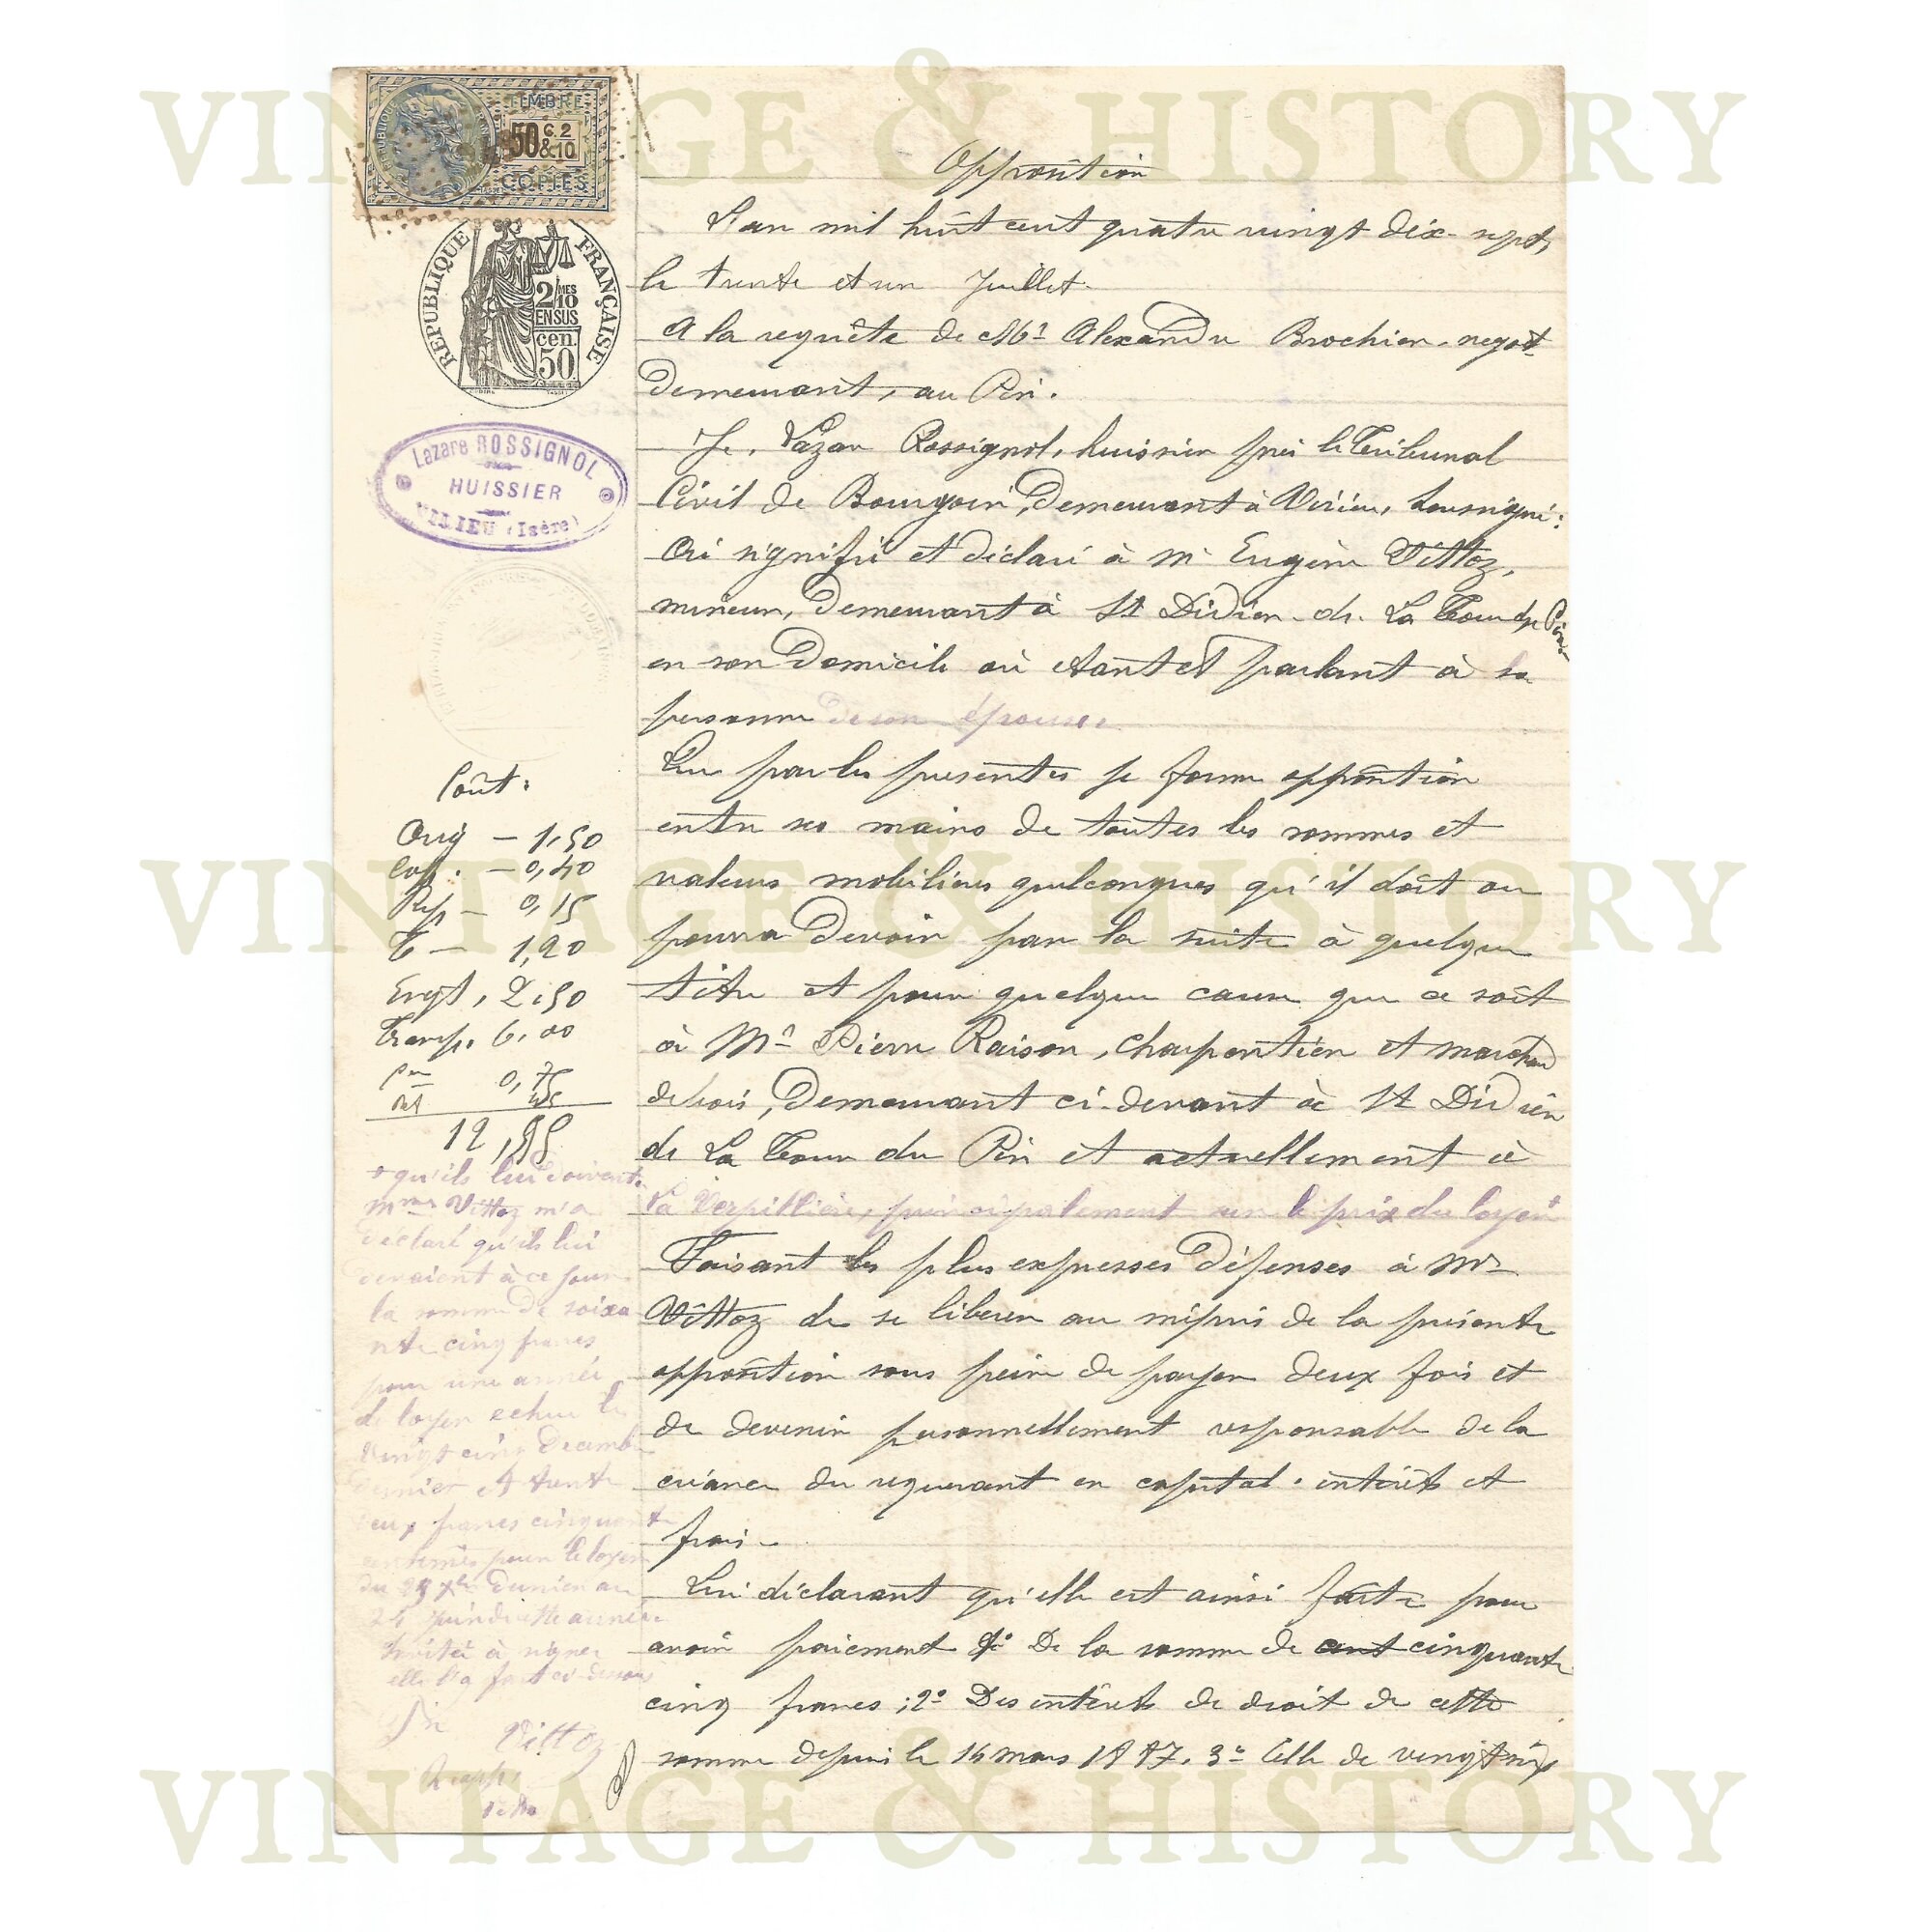 VINTAGE & HISTORY
TIMBRE
50 c. 2 & 10
COPIES
REPUBLIQUE FRANÇAISE
2/10 MES
EN SUS
cen.
50
Lazare ROSSIGNOL
HUISSIER
(Isère)
Opposition
L'an mil huit cent quatre vingt dix-sept,
le trente et un Juillet.
A la requête de Mr Alexandre Brochier, negot
demeurant, au Pin.
Je, Lazare Rossignol, huissier près le Tribunal
Civil de Bourgoin, demeurant à Virieu, soussigné:
Ai signifié et déclaré à Mr Eugène Vittoz,
mineur, demeurant à St Didier de La Tour du Pin
en son domicile où étant et parlant à sa
personne de son épouse.
Que par les présentes je forme opposition
entre ses mains de toutes les sommes et
valeurs mobilières quelconques qu'il doit ou
pourra devoir par la suite à quelque
titre et pour quelque cause que ce soit
à Mr Pierre Raison, charpentier et marchand
de bois, demeurant ci-devant à St Didier
de La Tour du Pin et actuellement à
La Verpillière, principalement sur le prix du loyer +
Faisant les plus expresses défenses à Mr
Vittoz de se libérer au mépris de la présente
opposition sous peine de payer deux fois et
de devenir personnellement responsable de la
créance du requérant en capital, intérêts et
frais.
Lui déclarant qu'elle est ainsi faite pour
avoir paiement 1° De la somme de cent cinquante
cinq francs; 2° Des intérêts de droit de cette
somme depuis le 16 mars 1887. 3° Celle de vingt six
Coût:
Orig — 1,50
Cop. — 0,40
Rép — 0,15
T — 1,20
Engt, 2,50
Transp. 6,00
0,75
12,55
+ qu'ils lui doivent.
Mme Vittoz m'a
déclaré qu'ils lui
devaient à ce jour
la somme de soixa
nte cinq francs
pour une année
de loyer echue le
vingt cinq Décemb
dernier et trente
deux francs cinquante
centimes pour le loyer
du 25 Xbre dernier au
24 juin de cette année
Invitée à signer
elle l'a fait ci-dessous
Vittoz
VINTAGE & HISTORY
VINTAGE & HISTORY